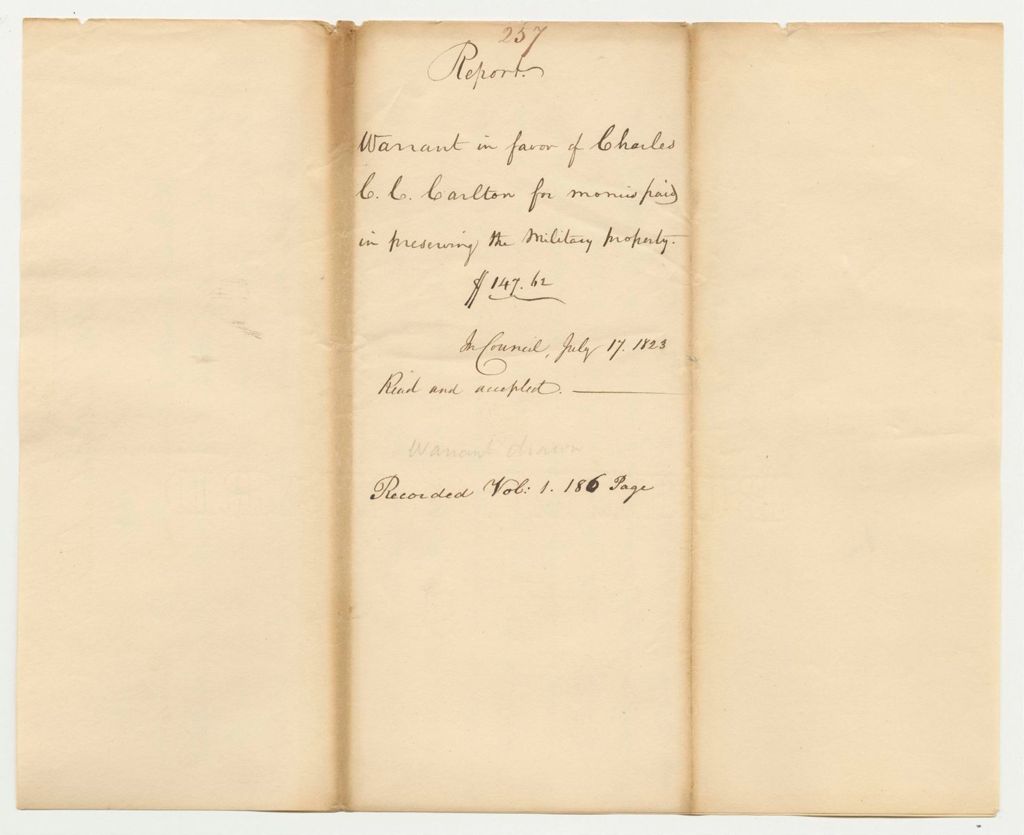 257
Report.
Warrant in favor of Charles
C. C. Carlton for monies paid
in preserving the Military property.
$147.62
In Council, July 17. 1823
Read and accepted.
Warrant drawn
Recorded Vol: 1. 186 Page